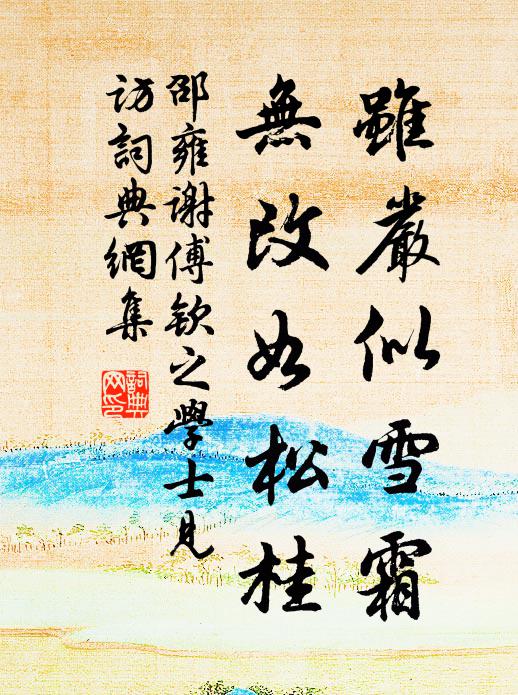 雖嚴似雪霜
無改如松桂
邵雍謝傅欽之學士見
訪詞典網集
詞典
网印